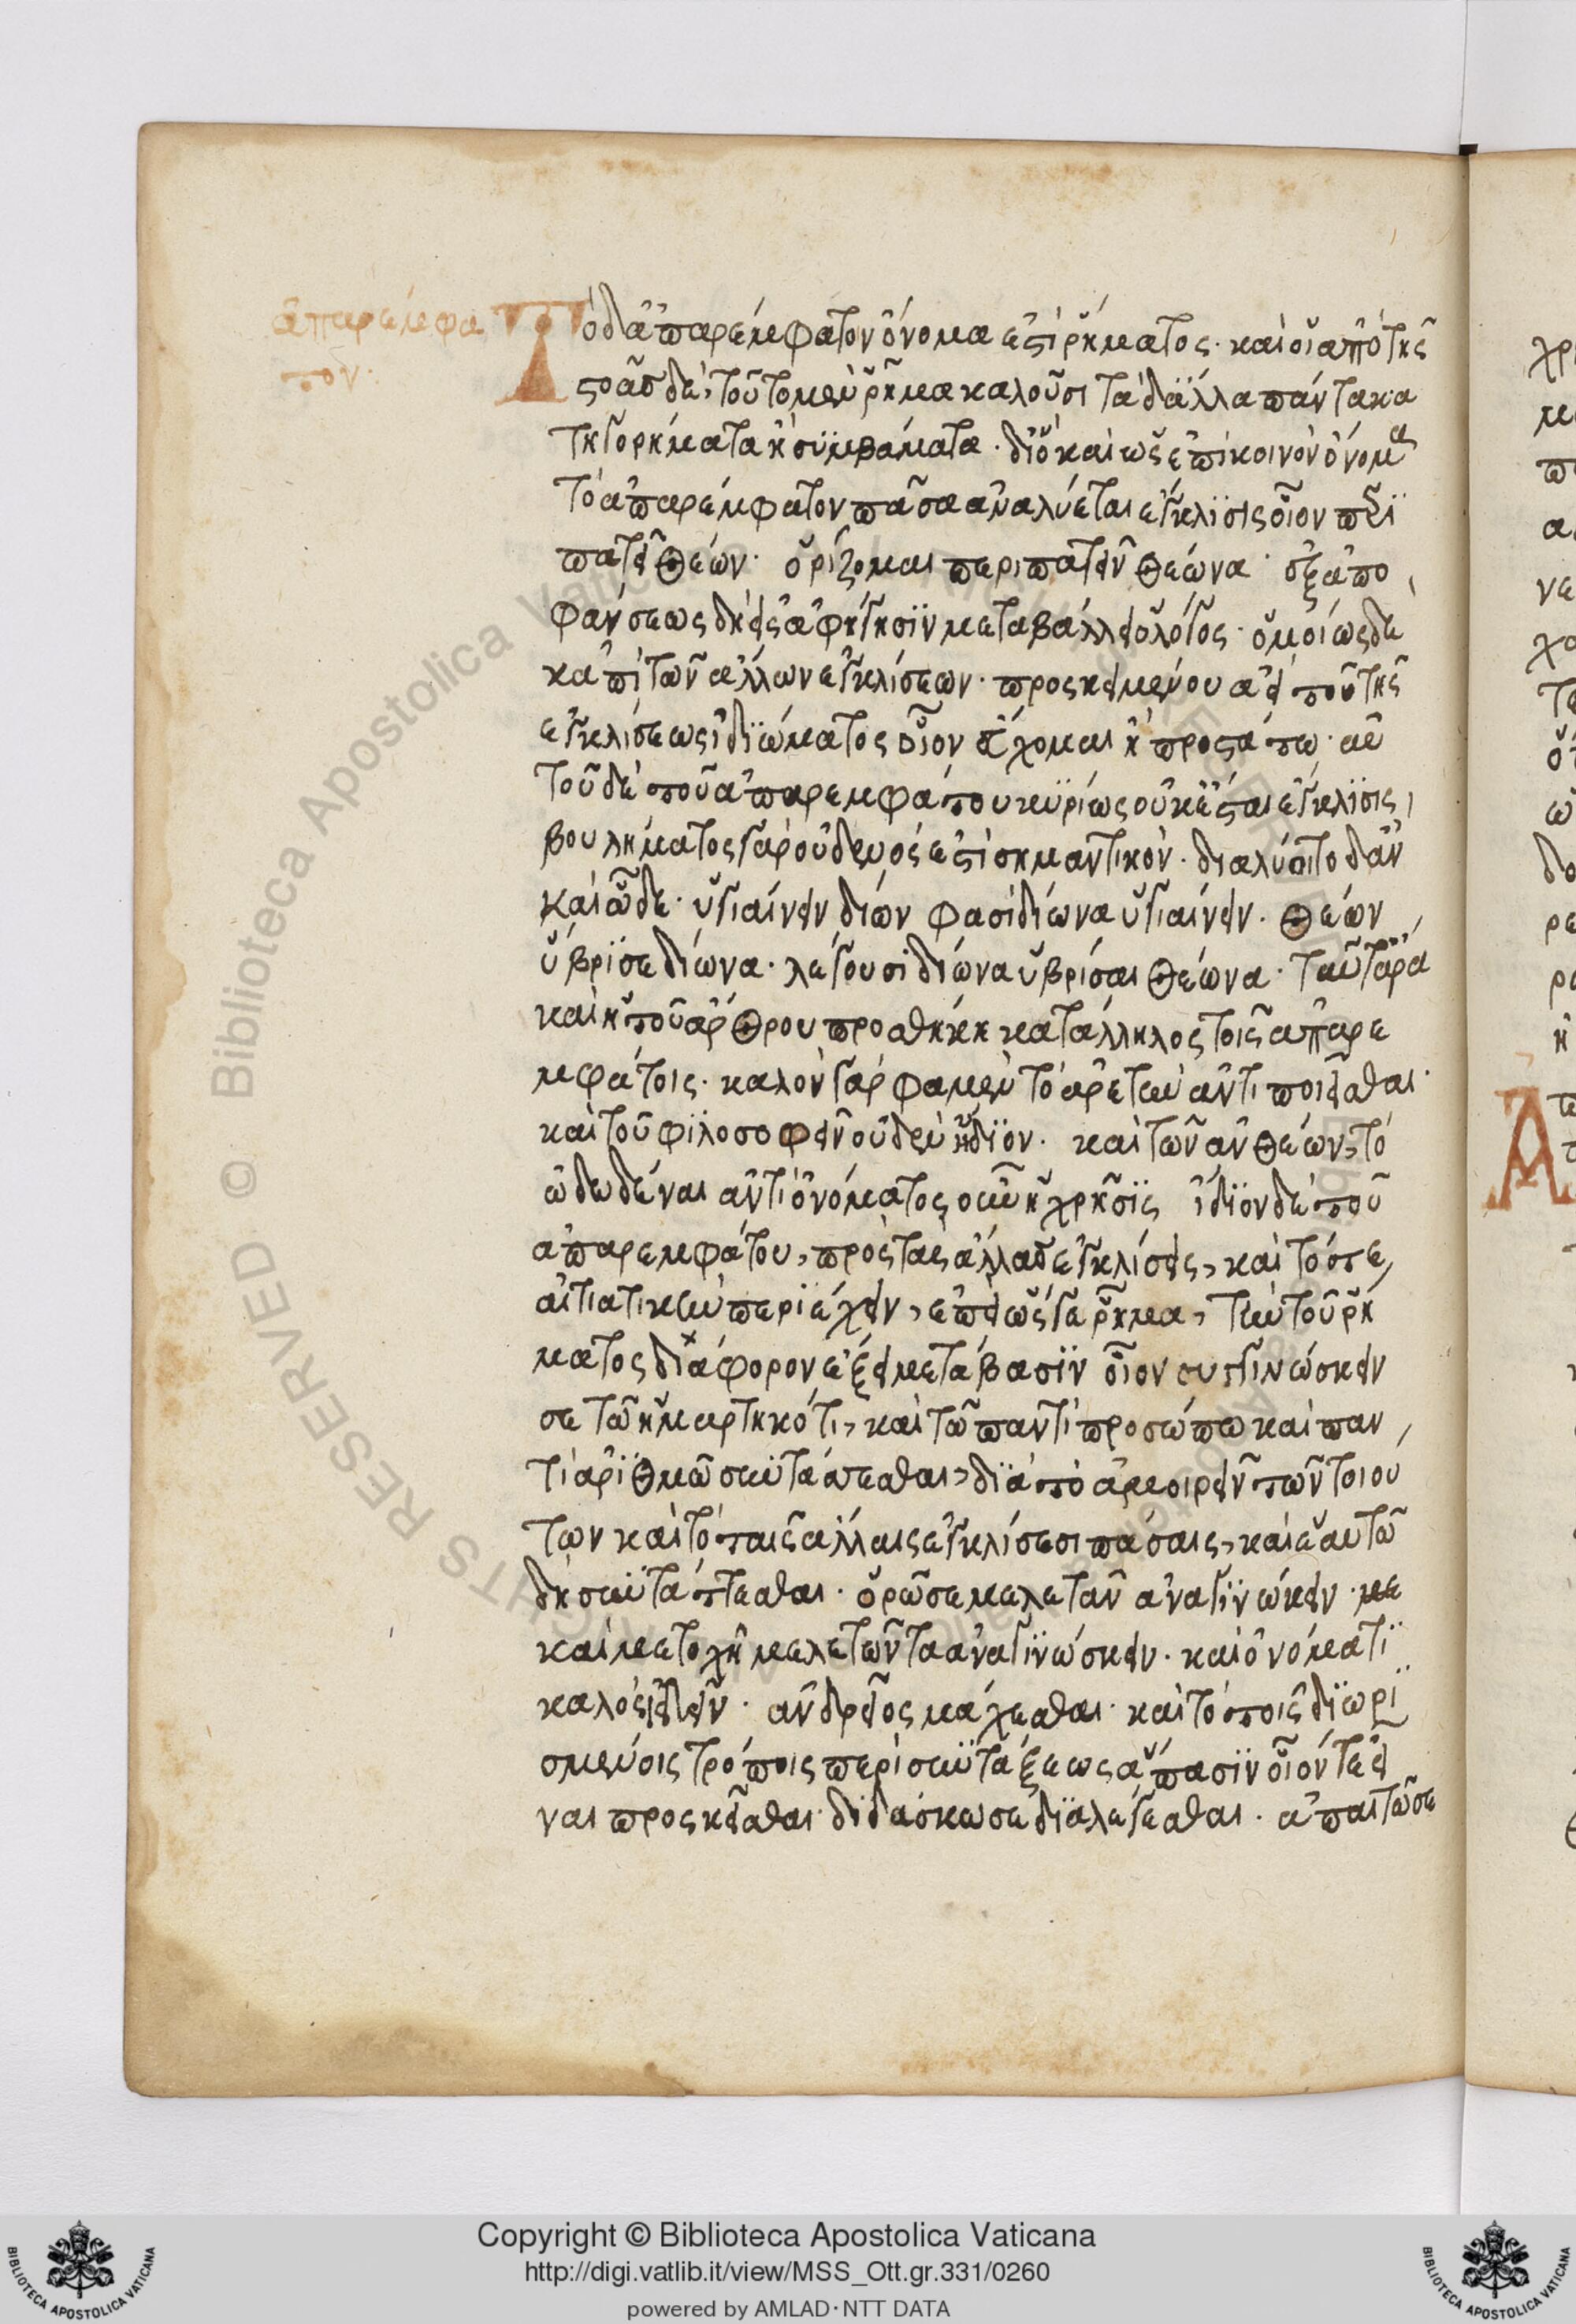 ἀπαρέμφα
τον·
Τὸ δ' ἀπαρέμφατον ὄνομα ἐστὶ ῥήματος· καὶ οἱ ἀπὸ τῆς
στοᾶς δὲ, τοῦτο μὲν ῥῆμα καλοῦσι τὰ δ' ἄλλα πάντα κα
τηγορήματα ἢ συμβάματα· διὸ καὶ ὡς ἐπὶ κοινὸν ὄνομα
τὸ ἀπαρέμφατον πᾶσα ἀναλύεται ἔγκλϊσις οἷον περϊ
πατεῖ Θεών· ὁρίζομαι περιπατεῖν Θεώνα· ἐξ ἀπο
φάνσεως δὴ εἰς ἀφήγησϊν μεταβάλλει ὁ λόγος· ὁμοίως δὲ
κἀπὶ τῶν ἄλλων ἐγκλίσεων· προσκειμένου ἀεὶ τοῦ τῆς
ἐγκλίσεως ἰδϊώματος οἷον εὔχομαι ἢ προστάττω· αὐ
τοῦ δὲ τοῦ ἀπαρεμφάτου κυρίως οὐκ ἔσται ἔγκλϊσις,
βουλήματος γὰρ οὐδενός ἐστὶ σημαντικὸν· διαλύοιτο δ' ἂν
καὶ ὧδε· ὑγιαίνειν διών φασὶ διώνα ὑγιαίνειν· Θεών
ὕβρϊσε διώνα· λέγουσι διώνα ὑβρίσαι Θεώνα· ταῦτ' ἄρα
καὶ ἡ τοῦ ἄρθρου προσθήκη κατάλληλος τοῖς ἀπαρε
μφάτοις· καλὸν γάρ φαμεν τὸ ἀρετῆς ἀντιποιεῖσθαι·
καὶ τοῦ φϊλοσοφεῖν οὐδὲν ἥδϊον· καὶ τῶν ἂν θεών, τὸ
ὧδ' ἰδέναι ἀντὶ ὀνόματος οὖν ἡ χρῆσϊς ἴδϊον δὲ τοῦ
ἀπαρεμφάτου, πρὸς τὰς ἄλλας ἐγκλίσεις, καὶ τό τε,
αἰτιατικὴν περιέχειν, ἐπεὶ ὥς γε ῥῆμα, τὴν τοῦ ῥή
ματος διάφορον ἕξει μετάβασϊν οἷον συγγϊνώσκειν
σε τῶ ἡμαρτηκότι, καὶ τῶ παντὶ προσώπω καὶ παν,
τὶ ἀρϊθμῶ συντάττεσθαι, δϊὰ τὸ ἀμοιρεῖν τῶν τοιού
των καὶ τὸ ταῖς ἄλλαις ἐγκλίσεσι πάσαις, καὶ ἑαυτῶ
δὴ συντάττεσθαι· ὁρῶ σε μελετᾶν ἀναγϊνώσκειν· με
καὶ μετοχῆ μελετῶντα ἀναγϊνώσκειν· καὶ ὀνόματϊ
καλὸς ἰδεῖν· ἀνδρεῖος μάχεσθαι· καὶ τὸ τοῖς δϊωρι
σμένοις τρόποις περὶ συντάξεως ἅπασϊν οἷόν τε εἶ
ναι προσκεῖσθαι· δϊδάσκω σὲ δϊαλέγεσθαι· ἀπαιτῶ σε
Copyright © Biblioteca Apostolica Vaticana
http://digi.vatlib.it/view/MSS_Ott.gr.331/0260
powered by AMLAD·NTT DATA